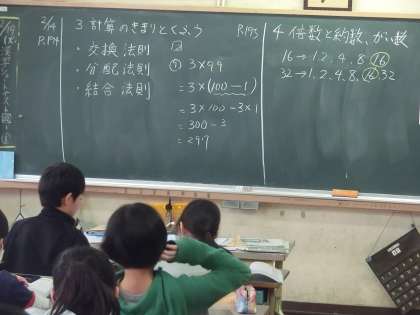 2/14
P.194
3 計算のきまりとくふう
・交換法則
・分配法則
・結合法則
P.193
② 
① 3×99
=3×(100-1)
=3×100-3×1
=300-3
=297
4 倍数と約数、がい数
16→1.2.4.8.16
32→1.2.4.8.16.32